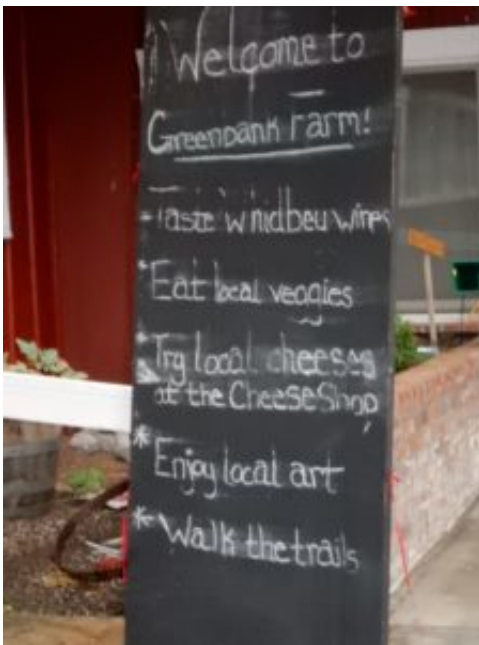 Welcome to
Greenbank Farm!
-Taste Whidbey wines
*Eat local veggies
*Try local cheeses
at the Cheese Shop
*Enjoy local art
*Walk the trails